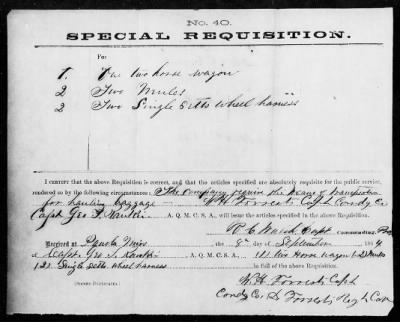 No. 40.
SPECIAL REQUISITION.
For
1. One two horse wagon
2 Two Mules
2 Two Single Setts Wheel harness
I CERTIFY that the above Requisition is correct, and that the articles specified are absolutely requisite for the public service,
rendered so by the following circumstances: The Company require the means of transportation
for hauling baggage W. H. Forrest Capt Comdg Co
Capt Geo S. A. Q. M. C. S. A., will issue the articles specified in the above Requisition.
Capt Commanding.
Received at Panola Miss the 8th of September 1864
of Capt Geo S. (1) two Horse wagon (2) Mules
(2) Single setts wheel harness in full of the above Requisition.
(SIGNED DUPLICATES.) W. H. Forrest Capt
Comdg Co. D Forrests Regt Cav